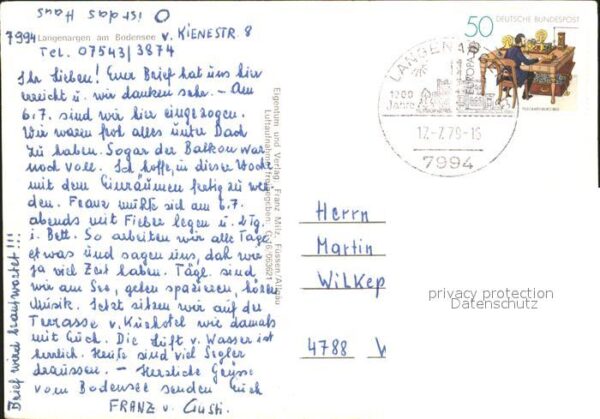 O ist das Haus
7994 Langenargen am Bodensee v. KIENESTR. 8
Tel. 07543/3874
Ihr Lieben! Euer Brief hat uns hier
erreicht u. wir danken sehr. - Am
6.7. sind wir hier eingezogen.
Wir waren froh alles unter Dach
zu haben. Sogar der Balkon war
noch voll. Ich hoffe, in dieser Woche
mit dem Einräumen fertig zu wer
den. Franz mußte sich am 6.7.
abends mit Fieber legen u. 2 Tg.
i. Bett. So arbeiten wir alle Tage
etwas und sagen uns, daß wir
ja viel Zeit haben. Tägl. sind
wir am See, gehen spazieren, hören
Musik. Jetzt sitzen wir auf der
Terrasse v. Kurhotel wie damals
mit Euch. Die Luft v. Wasser ist
herrlich. Heute sind viel Segler
draussen. - Herzliche Grüsse
vom Bodensee senden Euch
FRANZ u. Gusti.
Brief wird beantwortet!!!
Eigentum und Verlag Franz Milz, Füssen/Allgäu
Luftaufnahme freigegeben
50 DEUTSCHE BUNDESPOST
EUROPA
LANGENARGEN
1200
Jahre
12.-7.79-15
7994
Herrn
Martin
Wilkep
4788 W
privacy protection
Datenschutz